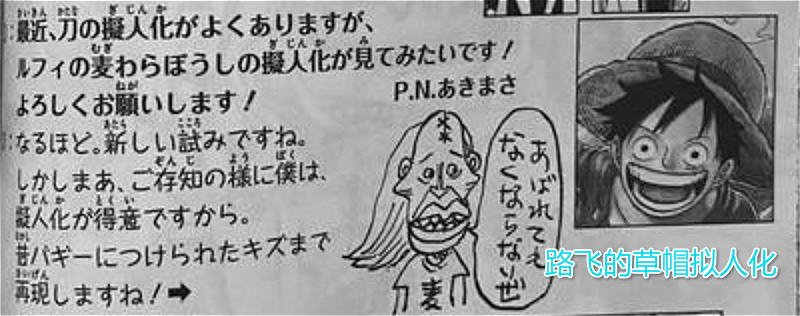 最近、刀の擬人化がよくありますが、
ルフィの麦わらぼうしの擬人化が見てみたいです！
よろしくお願いします！
P.N.あきまさ
なるほど。新しい試みですね。
しかしまあ、ご存知の様に僕は、
擬人化が得意ですから。
昔バギーにつけられたキズまで
再現しますね！➡
あばれてえ
なくならないぜ
麦
路飞的草帽拟人化